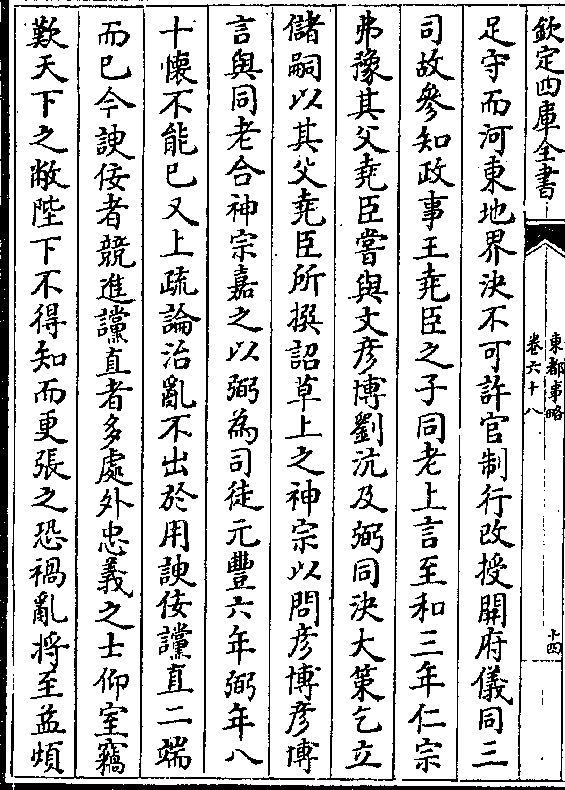 欽定四庫全書
東都事略
卷六十八
十四
足守而河東地界決不可許官制行改授開府儀同三
司故參知政事王堯臣之子同老上言至和三年仁宗
弗豫其父堯臣嘗與文彥博劉沆及弼同決大策乞立
儲嗣以其父堯臣所撰詔草上之神宗以問彥博彥博
言與同老合神宗嘉之以弼為司徒元豐六年弼年八
十懷不能已又上疏論治亂不出於用諛佞讜直二端
而已今諛佞者競進讜直者多處外忠義之士仰室竊
歎天下之敝陛下不得知而更張之恐禍亂將至益煩